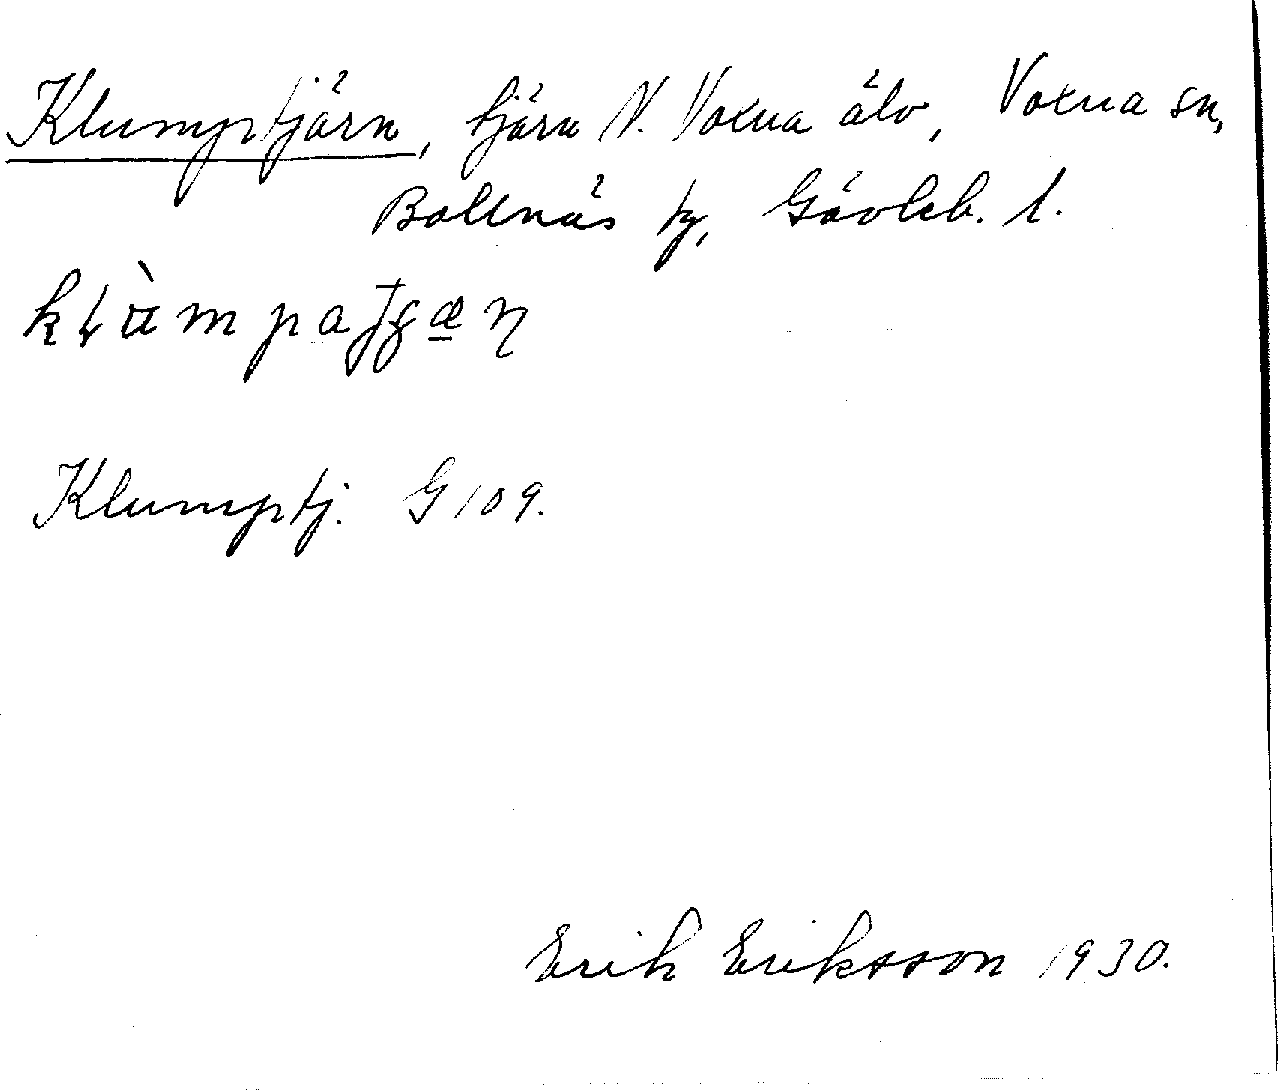 Klumptjärn, tjärn N. Voxna älv, Voxna sn,
Bollnäs tg, Gävleb. l.
Klumptj. G 109.
Erik Eriksson 1930.